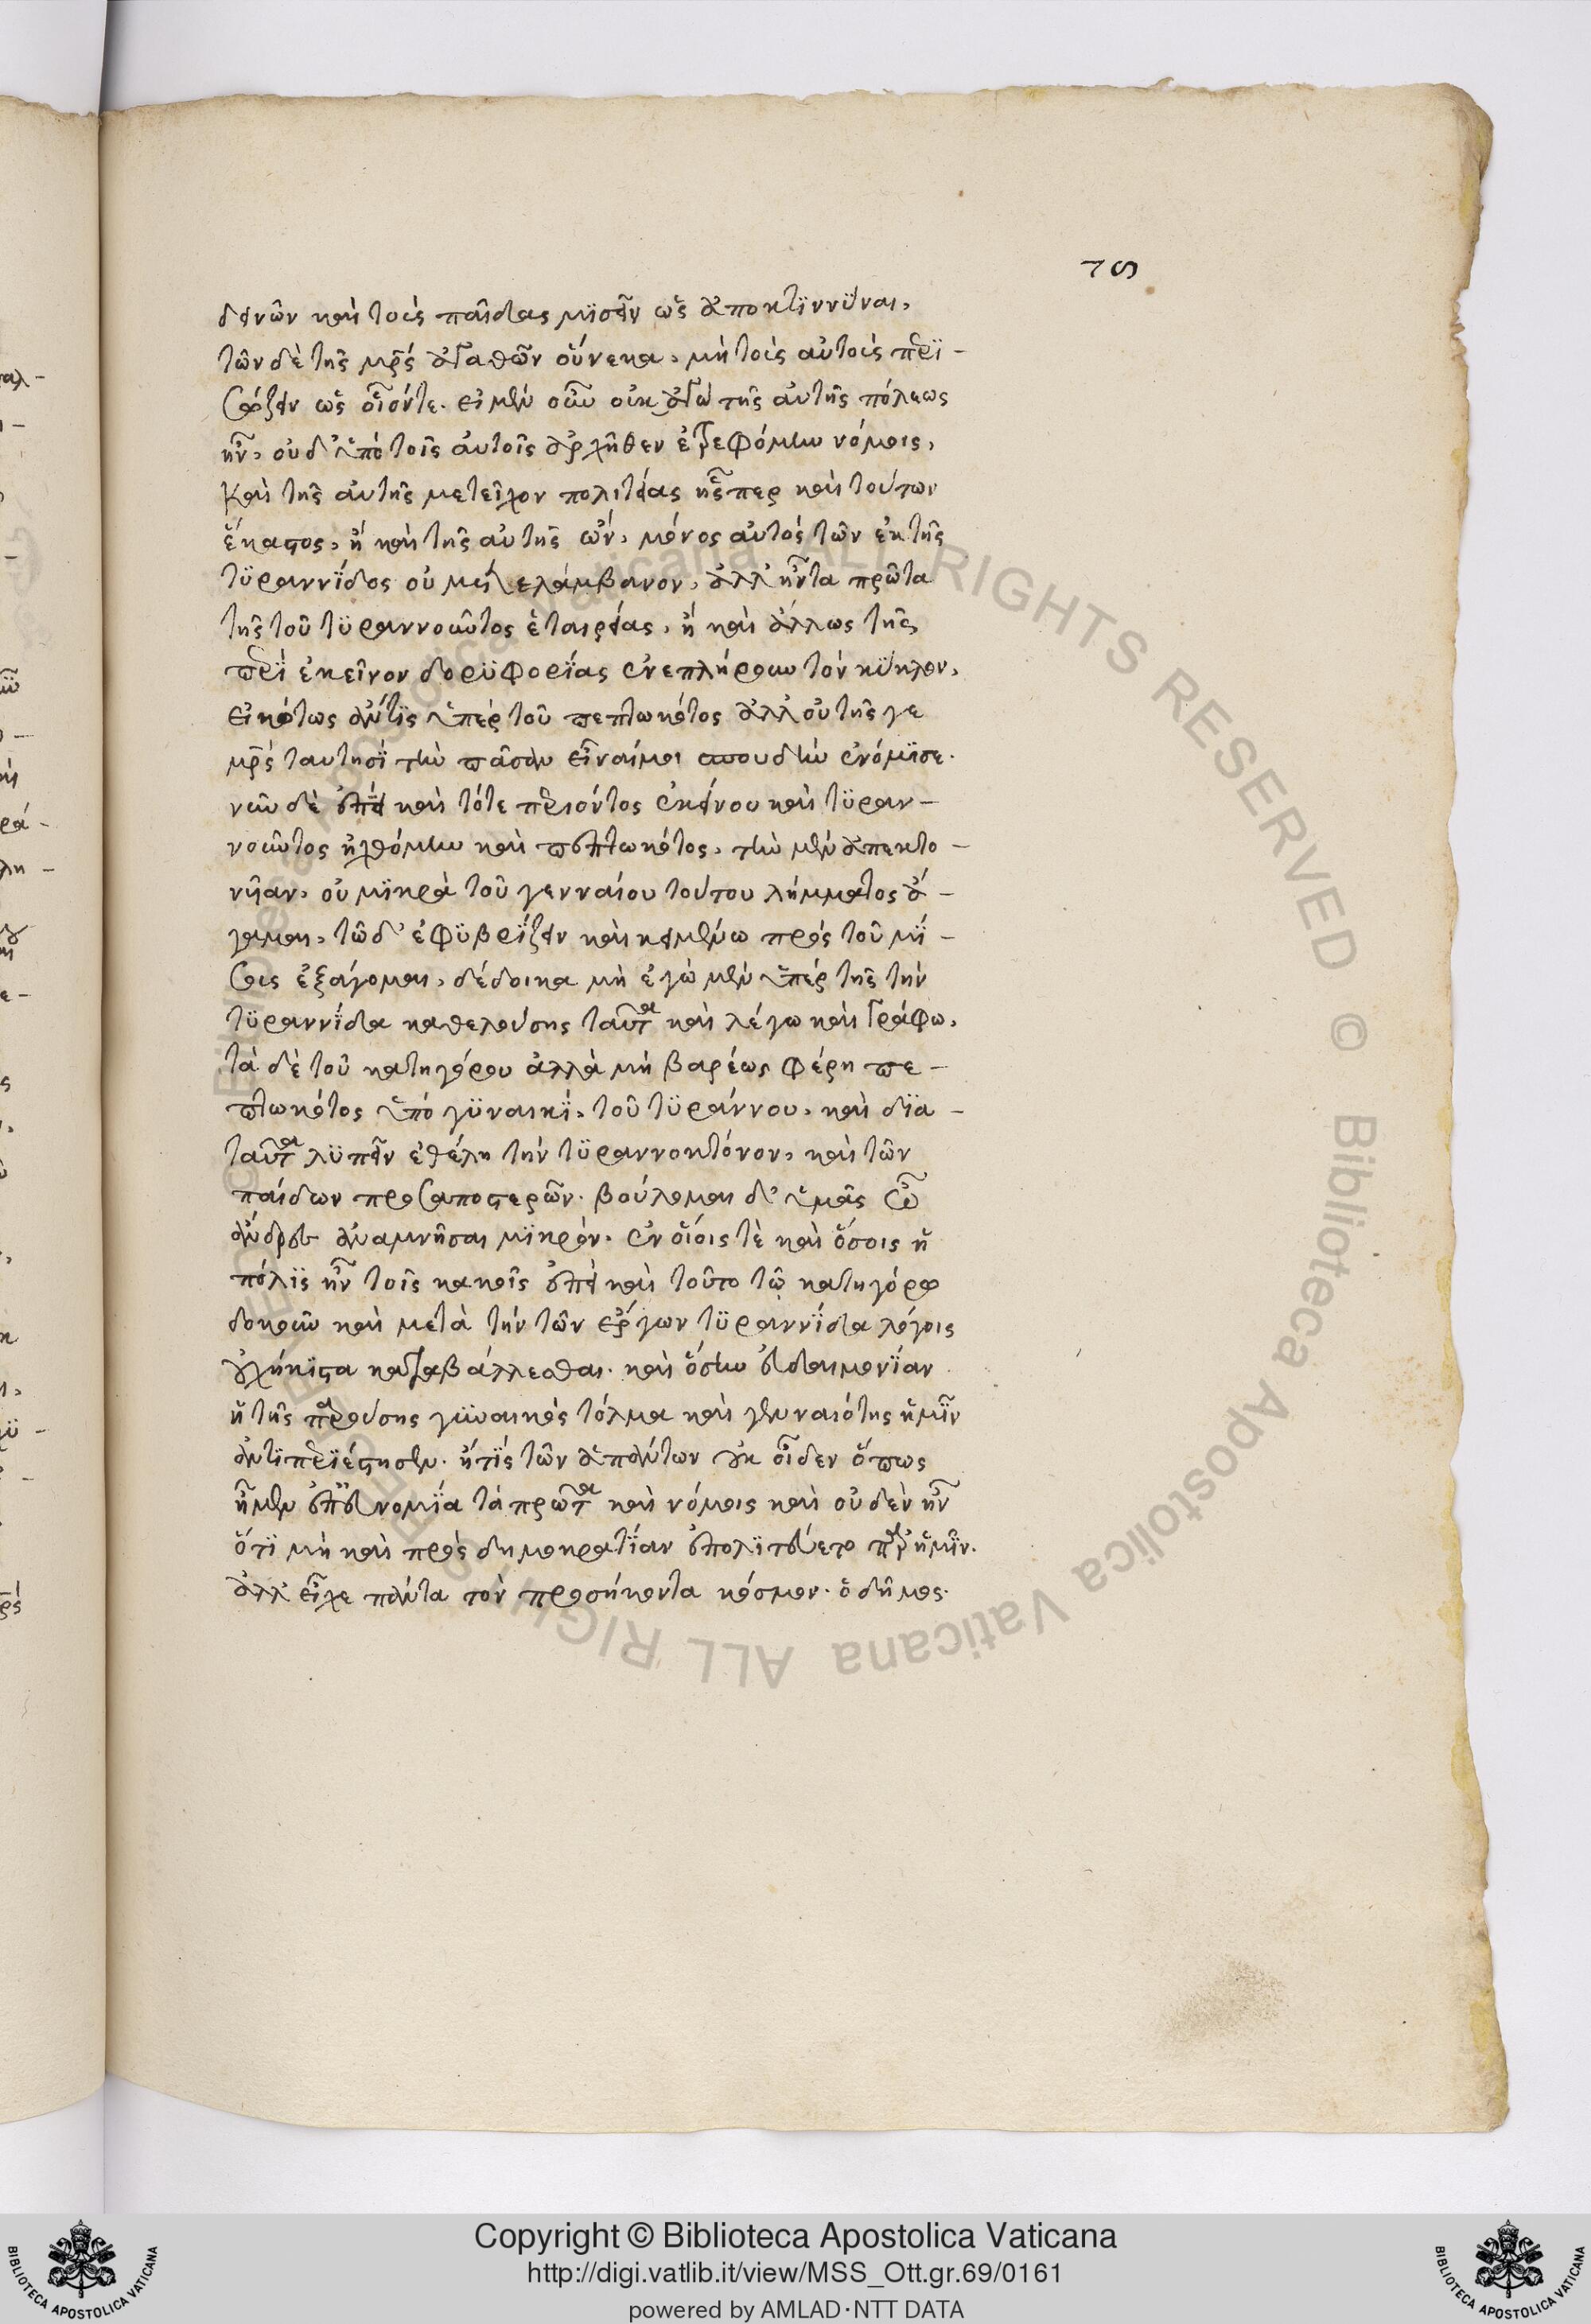 76
δεινῶν καὶ τοὺς παῖδας μϊσεῖν ὡς ἀποκτϊννΰναι,
τῶν δὲ τῆς μρς ἀγαθῶν οὕνεκα, μὴ τοὺς αὐτοὺς περϊ-
σώζειν ὡς οἷόντε. εἰ μὲν οὖν οὐκ ἐγὼ τῆς αὐτῆς πόλεως
ἦν, οὐδ' ὑπὸ τοῖς αὐτοῖς ἀρχῆθεν ἐτρεφόμην νόμοις,
καὶ τῆς αὐτῆς μετεῖχον πολιτείας ἧσπερ καὶ τούτων
ἕκαστος, ἢ καὶ τῆς αὐτῆς ὢν, μόνος αὐτὸς τῶν ἐκ τῆς
τϋραννΐδος οὐ μετελάμβανον, ἀλλ' ἦν τὰ πρῶτα
τῆς τοῦ τϋραννοῦντος ἑταιρείας, ἢ καὶ ἄλλως τῆς
περὶ ἐκεῖνον δορϋφορΐας ἐνεπλήρουν τὸν κΰκλον,
εἰκότως ἄν τϊς ὑπὲρ τοῦ πεπτωκότος ἀλλ' οὐ τῆς γε
μρς ταυτησῒ τὴν πᾶσαν εἶναί μοι σπουδὴν ἐνόμϊσε.
νῦν δὲ ἐπεὶ καὶ τότε περιόντος ἐκείνου καὶ τϋραν-
νοῦντος ἠχθόμην καὶ πεπτωκότος, τὴν μὲν ἀπεκτο-
νῆαν, οὐ μϊκρὰ τοῦ γενναίου τούτου λήμματος ἄ-
γαμαι, τῶδ' ἐφϋβρΐζειν καὶ κειμένω πρὸς τοῦ μΐ-
σους ἐξάγομαι, δέδοικα μὴ ἐγὼ μὲν ὑπὲρ τῆς τὴν
τϋραννΐδα καθελούσης ταῦτα καὶ λέγω καὶ γράφω,
τὰ δὲ τοῦ κατηγόρου ἀλλὰ μὴ βαρέως φέρη πε-
πτωκότος ὑπὸ γϋναικῒ, τοῦ τϋράννου, καὶ δϊα-
ταῦτα λϋπεῖν ἐθέλη τὴν τϋραννοκτόνον, καὶ τῶν
παίδων προσαποστερῶν. βούλομαι δ' ὑμᾶς ὦ
ἄνδρες ἀναμνῆσαι μϊκρὸν. ἐν οἵοις τὲ καὶ ὅσοις ἡ
πόλϊς ἦν τοῖς κακοῖς ἐπεὶ καὶ τοῦτο τῷ κατηγόρω
δοκοῦν καὶ μετὰ τὴν τῶν ἔργων τϋραννΐδα λόγοις
οὐχήκϊστα καταβάλλεσθαι. καὶ ὅσην εὐδαιμονΐαν
ἡ τῆς παρούσης γϋναικὸς τόλμα καὶ γενναιότης ἡμῖν
ἀντϊπερϊέστησεν. ἢ τΐς τῶν ἁπάντων οὐκ οἶδεν ὅπως
ἦμεν ἐπ' εὐνομΐα τὰ πρῶτα καὶ νόμοις καὶ οὐδὲν ἦν
ὅτϊ μὴ καὶ πρὸς δημοκρατΐαν ἐπολϊτεύετο παρ' ἡμῖν.
ἀλλ' εἶχε πάντα τὸν προσήκοντα κόσμον. ὁ δῆμος.
Copyright © Biblioteca Apostolica Vaticana
http://digi.vatlib.it/view/MSS_Ott.gr.69/0161
powered by AMLAD·NTT DATA